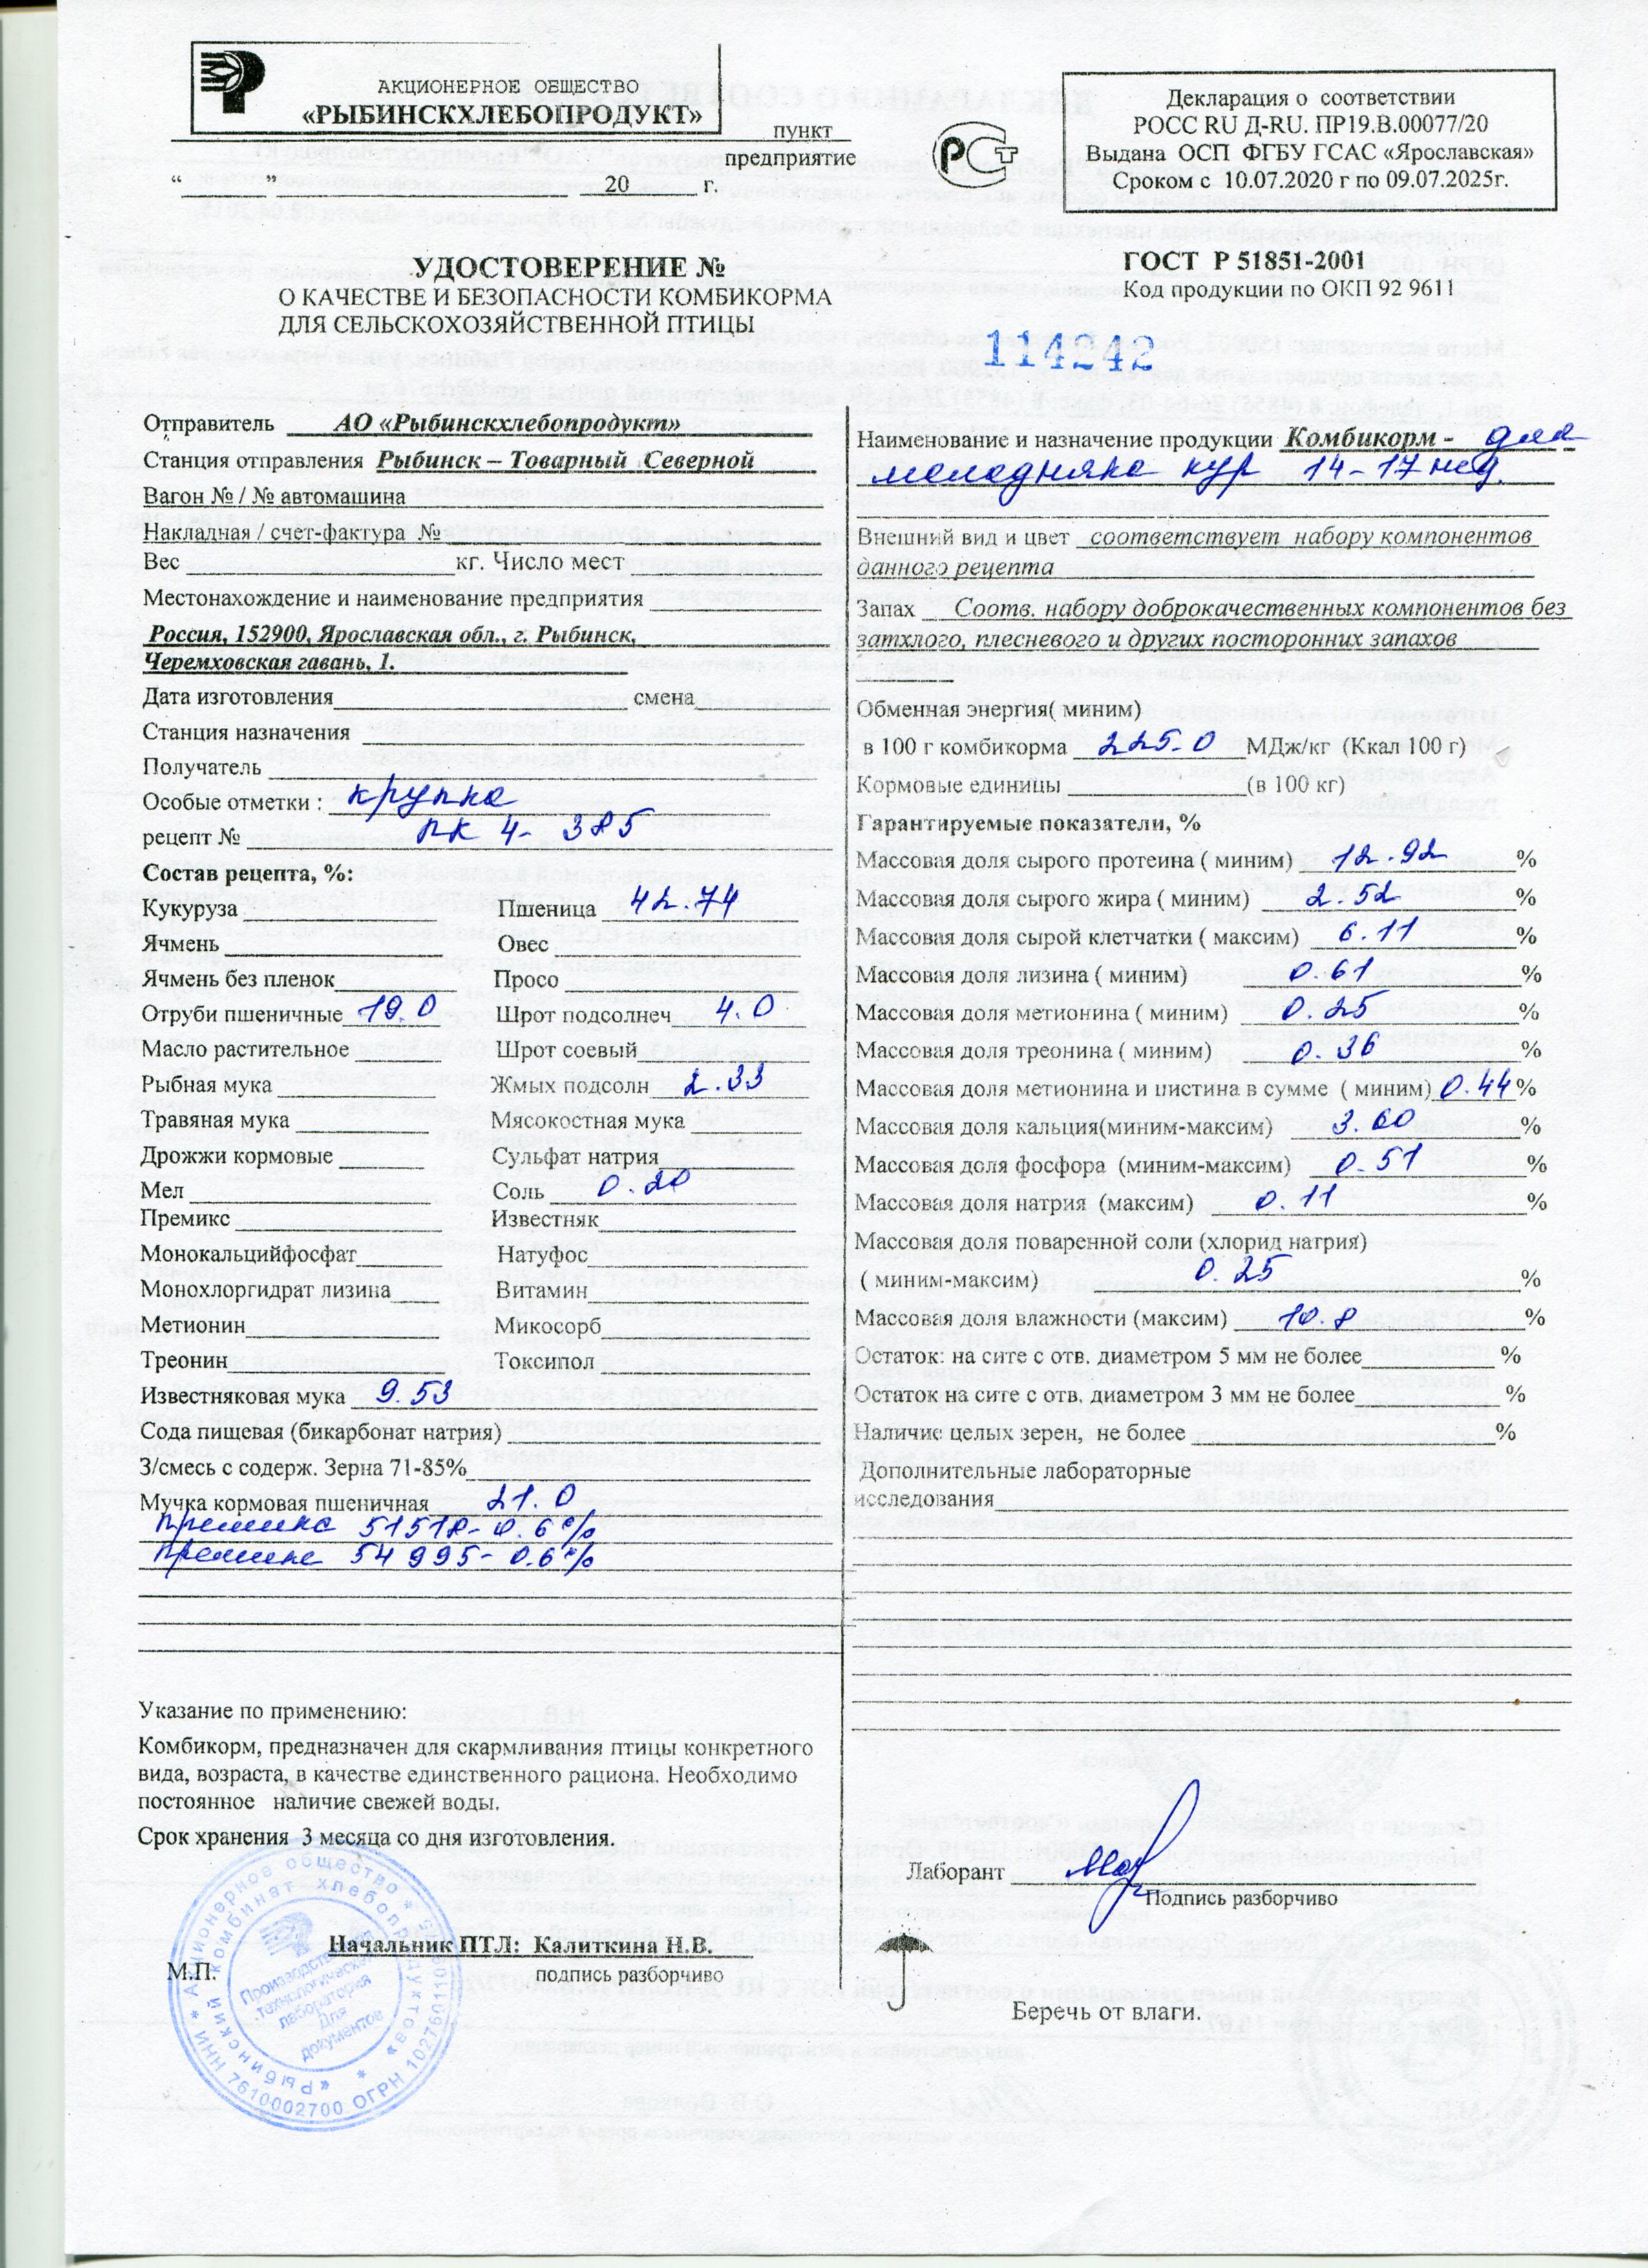 АКЦИОНЕРНОЕ ОБЩЕСТВО
«РЫБИНСКХЛЕБОПРОДУКТ»
пункт
предприятие
“ ” 20 г.
РСТ
Декларация о соответствии
РОСС RU Д-RU. ПР19.В.00077/20
Выдана ОСП ФГБУ ГСАС «Ярославская»
Сроком с 10.07.2020 г по 09.07.2025г.
УДОСТОВЕРЕНИЕ №
О КАЧЕСТВЕ И БЕЗОПАСНОСТИ КОМБИКОРМА
ДЛЯ СЕЛЬСКОХОЗЯЙСТВЕННОЙ ПТИЦЫ
ГОСТ Р 51851-2001
Код продукции по ОКП 92 9611
114242
Отправитель АО «Рыбинскхлебопродукт»
Станция отправления Рыбинск – Товарный Северной
Вагон № / № автомашина
Накладная / счет-фактура №
Вес кг. Число мест
Местонахождение и наименование предприятия
Россия, 152900, Ярославская обл., г. Рыбинск,
Черемховская гавань, 1.
Дата изготовления смена
Станция назначения
Получатель
Особые отметки : крупка
рецепт № ПК 4- 385
Состав рецепта, %:
Кукуруза Пшеница 42.74
Ячмень Овес
Ячмень без пленок Просо
Отруби пшеничные 19.0 Шрот подсолнеч 4.0
Масло растительное Шрот соевый
Рыбная мука Жмых подсолн 2.33
Травяная мука Мясокостная мука
Дрожжи кормовые Сульфат натрия
Мел Соль 0.20
Премикс Известняк
Монокальцийфосфат Натуфос
Монохлоргидрат лизина Витамин
Метионин Микосорб
Треонин Токсипол
Известняковая мука 9.53
Сода пищевая (бикарбонат натрия)
З/смесь с содерж. Зерна 71-85%
Мучка кормовая пшеничная 21.0
Премикс 51518- 0.6%
Премикс 54995- 0.6%
Указание по применению:
Комбикорм, предназначен для скармливания птицы конкретного
вида, возраста, в качестве единственного рациона. Необходимо
постоянное наличие свежей воды.
Срок хранения 3 месяца со дня изготовления.
Начальник ПТЛ: Калиткина Н.В.
М.П. подпись разборчиво
Акционерное общество * ИНН 7610002700 ОГРН
«Рыбинский комбинат хлебопродуктов»
Производственная
технологическая
лаборатория
Для
документов
Наименование и назначение продукции Комбикорм - для
молодняка кур 14-17 нед.
Внешний вид и цвет соответствует набору компонентов
данного рецепта
Запах Соотв. набору доброкачественных компонентов без
затхлого, плесневого и других посторонних запахов
Обменная энергия( миним)
в 100 г комбикорма 225.0 МДж/кг (Ккал 100 г)
Кормовые единицы (в 100 кг)
Гарантируемые показатели, %
Массовая доля сырого протеина ( миним) 12.92 %
Массовая доля сырого жира ( миним) 2.52 %
Массовая доля сырой клетчатки ( максим) 6.11 %
Массовая доля лизина ( миним) 0.61 %
Массовая доля метионина ( миним) 0.25 %
Массовая доля треонина ( миним) 0.36 %
Массовая доля метионина и цистина в сумме ( миним) 0.44 %
Массовая доля кальция(миним-максим) 3.60 %
Массовая доля фосфора (миним-максим) 0.51 %
Массовая доля натрия (максим) 0.11 %
Массовая доля поваренной соли (хлорид натрия)
( миним-максим) 0.25 %
Массовая доля влажности (максим) 10.8 %
Остаток: на сите с отв. диаметром 5 мм не более %
Остаток на сите с отв. диаметром 3 мм не более %
Наличие целых зерен, не более %
Дополнительные лабораторные
исследования
Лаборант
Подпись разборчиво
Беречь от влаги.